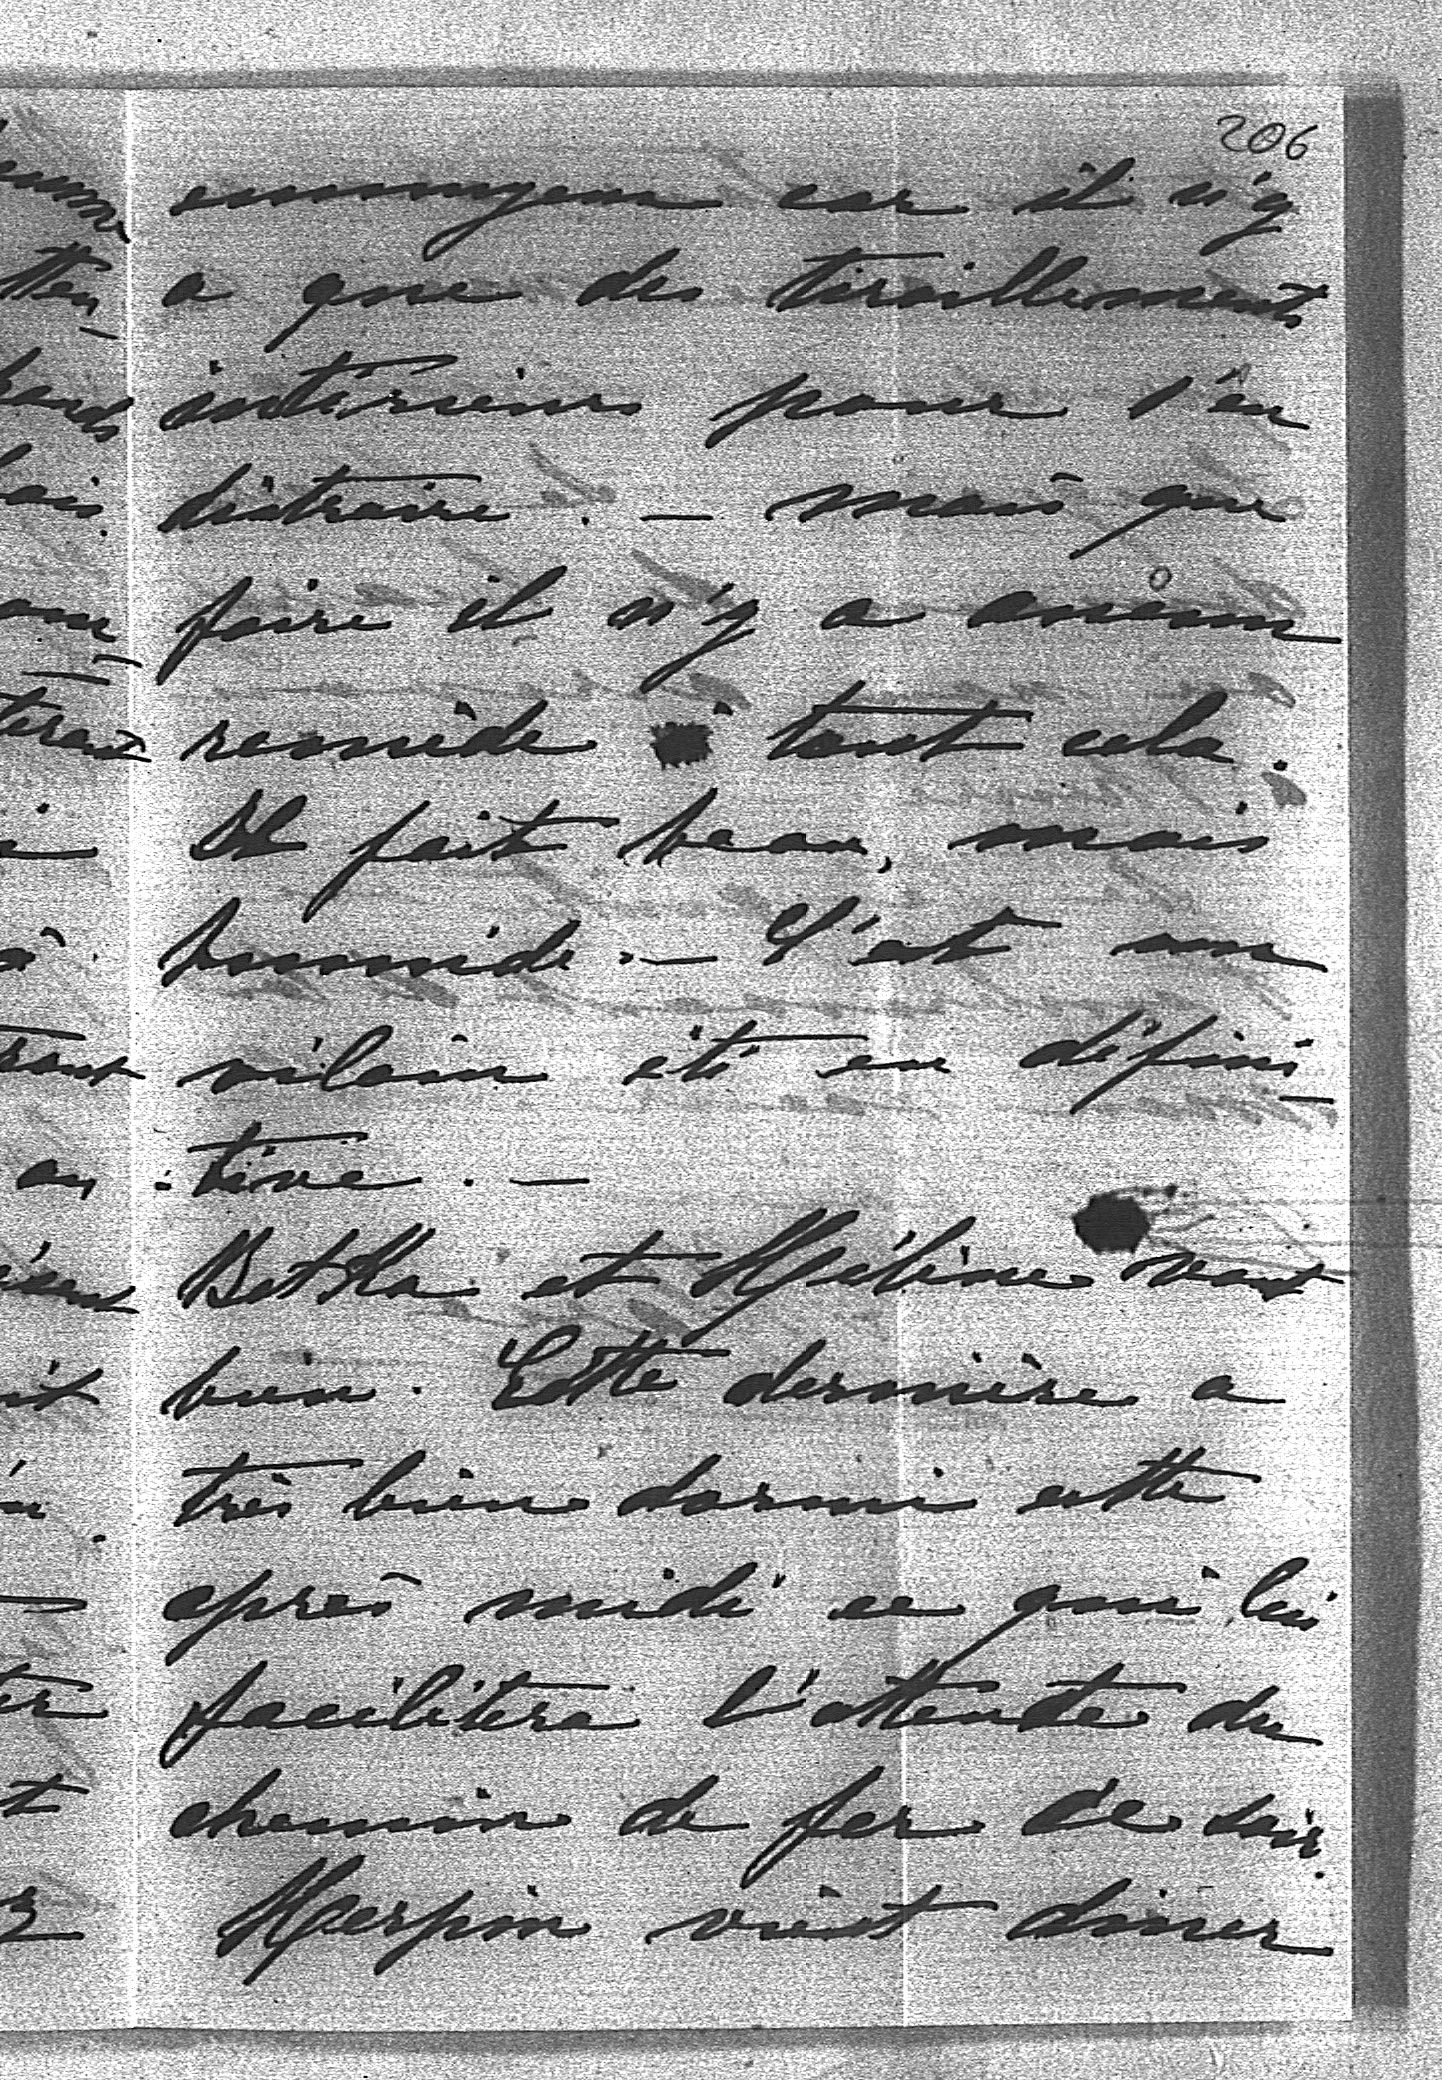 206
ennuyeux car il n'y
a que des tiraillements
intérieurs pour s'en
distraire. — mais que
faire il n'y a aucun
remède à tout cela.
Il fait beau, mais
humide. — C'est un
vilain été en défini-
:tive. —
Betka et Hélène vont
bien. Cette dernière a
très bien dormi cette
après midi ce qui lui
facilitera l'attente du
chemin de fer ce soir.
vient diner